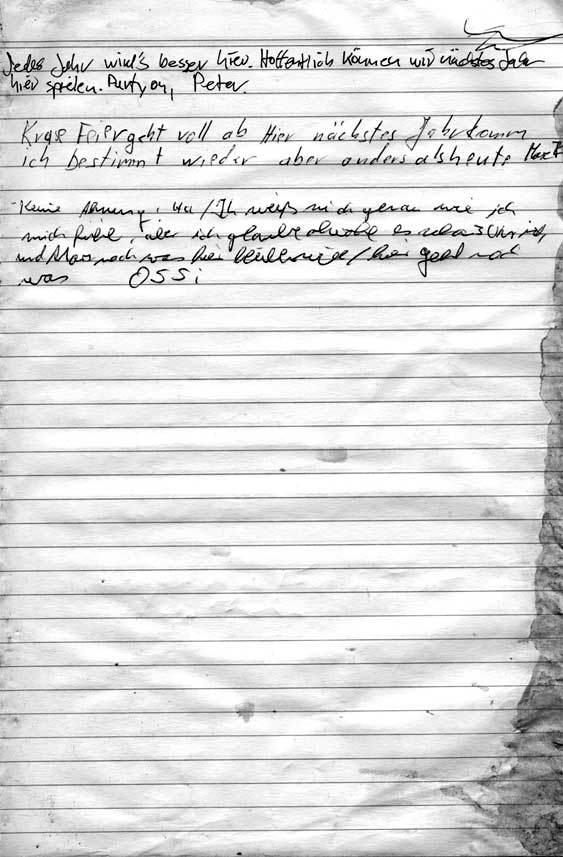 Jedes Jahr wird's besser hier. Hoffentlich können wir nächstes Jahr
hier spielen. Party on, Peter.
Feier geht voll ab Hier nächstes Jahr komm
ich bestimmt wieder aber anders als heute
Keine Ahnung, / Ich weiß nich genau wie ich
mich fühle, aber ich glaube es schon 3 Uhr ist,
und noch was hier / hier geht noch
was OSSi